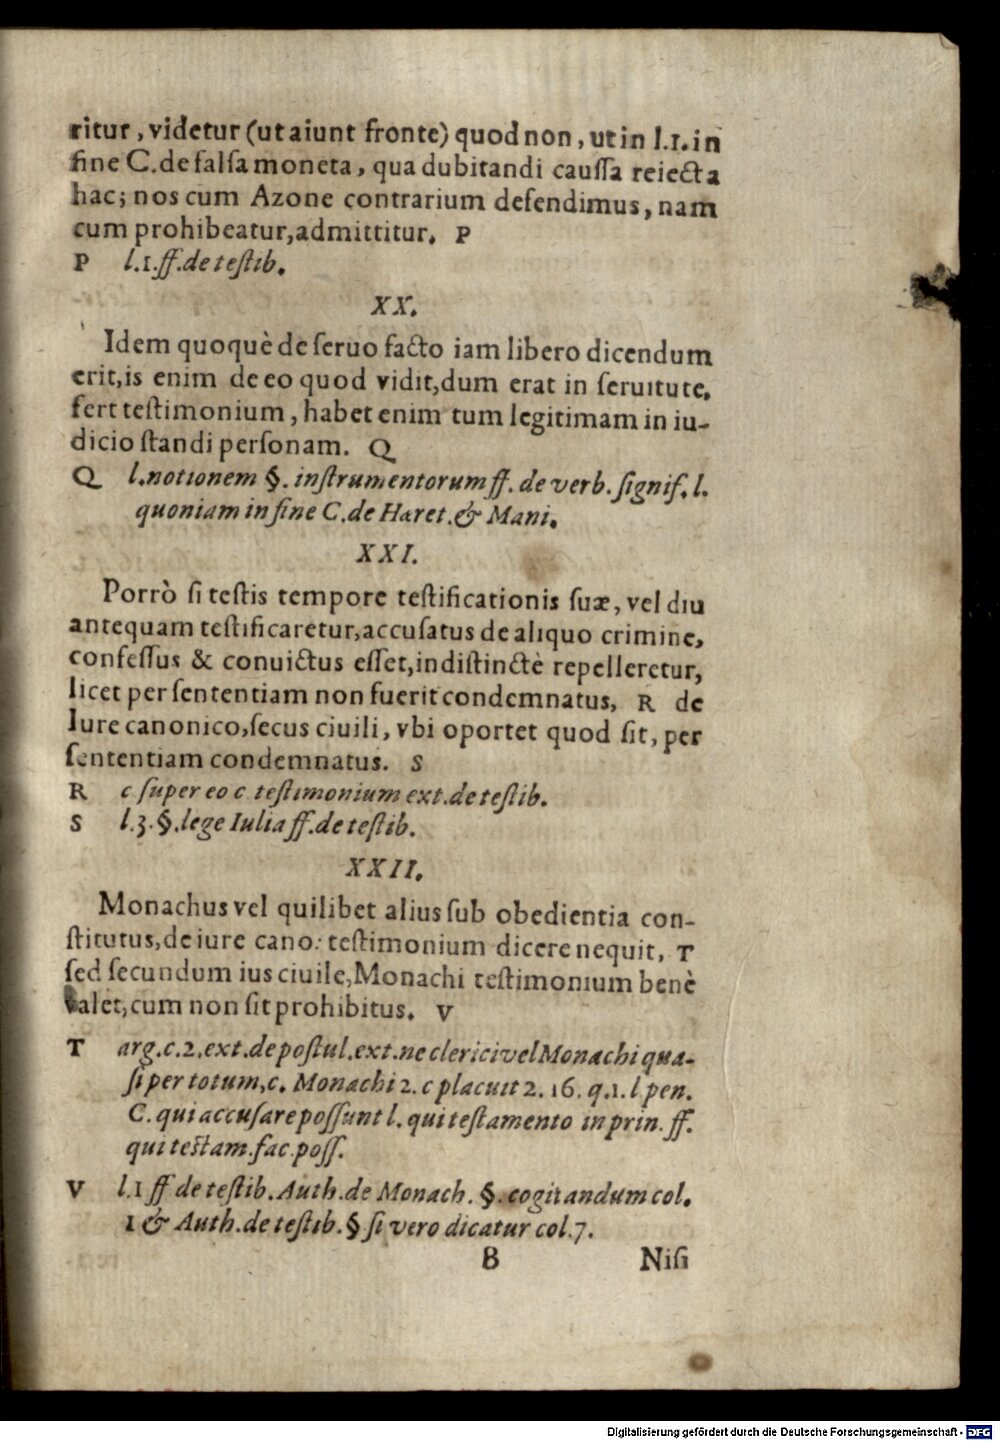 ritur, videtur (ut aiunt fronte) quod non, ut in l.1. in
fine C. de falſa moneta, qua dubitandi cauſſa reiecta
hac; nos cum Azone contrarium defendimus, nam
cum prohibeatur, admittitur. P
P l.1.ff.de teſtib.
XX.
Idem quoquè de ſeruo facto iam libero dicendum
erit, is enim de eo quod vidit, dum erat in ſeruitute,
fert teſtimonium, habet enim tum legitimam in iu-
dicio ſtandi perſonam. Q
Q l.notionem §. inſtrumentorum ff. de verb. ſignif. l.
quoniam in fine C. de Hæret. & Mani.
XXI.
Porrò ſi teſtis tempore teſtificationis ſuæ, vel diu
antequam teſtificaretur, accuſatus de aliquo crimine,
confeſſus & conuictus eſſet, indiſtinctè repelleretur,
licet per ſententiam non fuerit condemnatus, R de
Iure canonico, ſecus ciuili, vbi oportet quod ſit, per
ſententiam condemnatus. S
R c ſuper eo c teſtimonium ext. de teſtib.
S l.3.§.lege Iulia ff.de teſtib.
XXII.
Monachus vel quilibet alius ſub obedientia con-
ſtitutus, de iure cano: teſtimonium dicere nequit, T
ſed ſecundum ius ciuile, Monachi teſtimonium benè
valet, cum non ſit prohibitus. V
T arg.c.2.ext.de poſtul.ext.ne clerici vel Monachi qua-
ſi per totum, c. Monachi 2. c placuit 2. 16. q.1. l pen.
C. qui accuſare poſſunt l. qui teſtamento in prin. ff.
qui teſtam.fac.poſſ.
V l.1 ff de teſtib. Auth. de Monach. §. cogitandum col.
1 & Auth. de teſtib. § ſi vero dicatur col.7.
B Niſi
Digitalisierung gefördert durch die Deutsche Forschungsgemeinschaft - DFG